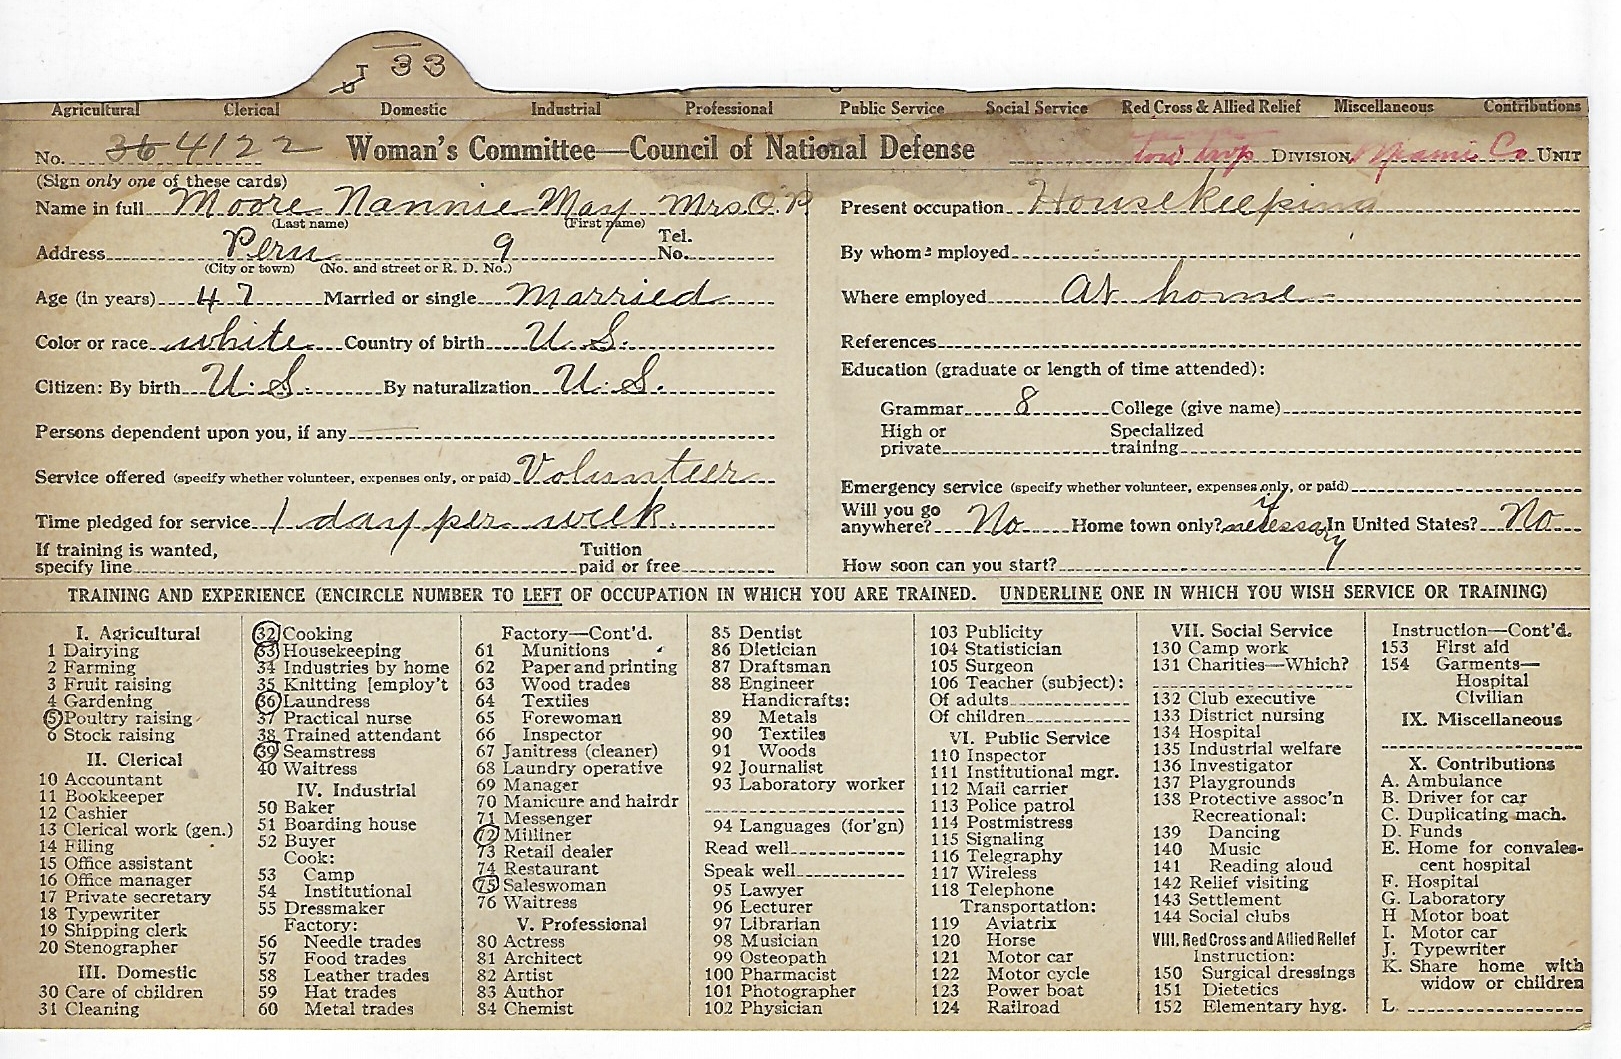 33
Agricultural Clerical Domestic Industrial Professional Public Service Social Service Red Cross & Allied Relief Miscellaneous Contributions
No. 36 4122 Woman's Committee—Council of National Defense DIVISION Miami Co. UNIT
(Sign only one of these cards)
Name in full Moore Nannie May Mrs. O. P.
(Last name) (First name)
Address Peru 9 Tel. No.
(City or town) (No. and street or R. D. No.)
Age (in years) 47 Married or single Married
Color or race white Country of birth U. S.
Citizen: By birth U. S. By naturalization U. S.
Persons dependent upon you, if any
Service offered (specify whether volunteer, expenses only, or paid) Volunteer
Time pledged for service 1 day per week.
If training is wanted, specify line Tuition paid or free
Present occupation Housekeeping
By whom employed
Where employed At home
References
Education (graduate or length of time attended):
Grammar 8 College (give name)
High or private Specialized training
Emergency service (specify whether volunteer, expenses only, or paid)
Will you go anywhere? No Home town only? if necessary In United States? No
How soon can you start?
TRAINING AND EXPERIENCE (ENCIRCLE NUMBER TO LEFT OF OCCUPATION IN WHICH YOU ARE TRAINED. UNDERLINE ONE IN WHICH YOU WISH SERVICE OR TRAINING)
I. Agricultural
1 Dairying
2 Farming
3 Fruit raising
4 Gardening
5 Poultry raising
6 Stock raising
II. Clerical
10 Accountant
11 Bookkeeper
12 Cashier
13 Clerical work (gen.)
14 Filing
15 Office assistant
16 Office manager
17 Private secretary
18 Typewriter
19 Shipping clerk
20 Stenographer
III. Domestic
30 Care of children
31 Cleaning
32 Cooking
33 Housekeeping
34 Industries by home
35 Knitting [employ't
36 Laundress
37 Practical nurse
38 Trained attendant
39 Seamstress
40 Waitress
IV. Industrial
50 Baker
51 Boarding house
52 Buyer
Cook:
53 Camp
54 Institutional
55 Dressmaker
Factory:
56 Needle trades
57 Food trades
58 Leather trades
59 Hat trades
60 Metal trades
Factory—Cont'd.
61 Munitions
62 Paper and printing
63 Wood trades
64 Textiles
65 Forewoman
66 Inspector
67 Janitress (cleaner)
68 Laundry operative
69 Manager
70 Manicure and hairdr
71 Messenger
72 Milliner
73 Retail dealer
74 Restaurant
75 Saleswoman
76 Waitress
V. Professional
80 Actress
81 Architect
82 Artist
83 Author
84 Chemist
85 Dentist
86 Dietician
87 Draftsman
88 Engineer
Handicrafts:
89 Metals
90 Textiles
91 Woods
92 Journalist
93 Laboratory worker
94 Languages (for'gn)
Read well
Speak well
95 Lawyer
96 Lecturer
97 Librarian
98 Musician
99 Osteopath
100 Pharmacist
101 Photographer
102 Physician
103 Publicity
104 Statistician
105 Surgeon
106 Teacher (subject):
Of adults
Of children
VI. Public Service
110 Inspector
111 Institutional mgr.
112 Mail carrier
113 Police patrol
114 Postmistress
115 Signaling
116 Telegraphy
117 Wireless
118 Telephone
Transportation:
119 Aviatrix
120 Horse
121 Motor car
122 Motor cycle
123 Power boat
124 Railroad
VII. Social Service
130 Camp work
131 Charities—Which?
132 Club executive
133 District nursing
134 Hospital
135 Industrial welfare
136 Investigator
137 Playgrounds
138 Protective assoc'n
Recreational:
139 Dancing
140 Music
141 Reading aloud
142 Relief visiting
143 Settlement
144 Social clubs
VIII. Red Cross and Allied Relief
Instruction:
150 Surgical dressings
151 Dietetics
152 Elementary hyg.
Instruction—Cont'd.
153 First aid
154 Garments—
Hospital
Civilian
IX. Miscellaneous
X. Contributions
A. Ambulance
B. Driver for car
C. Duplicating mach.
D. Funds
E. Home for convales-
cent hospital
F. Hospital
G. Laboratory
H Motor boat
I. Motor car
J. Typewriter
K. Share home with
widow or children
L.